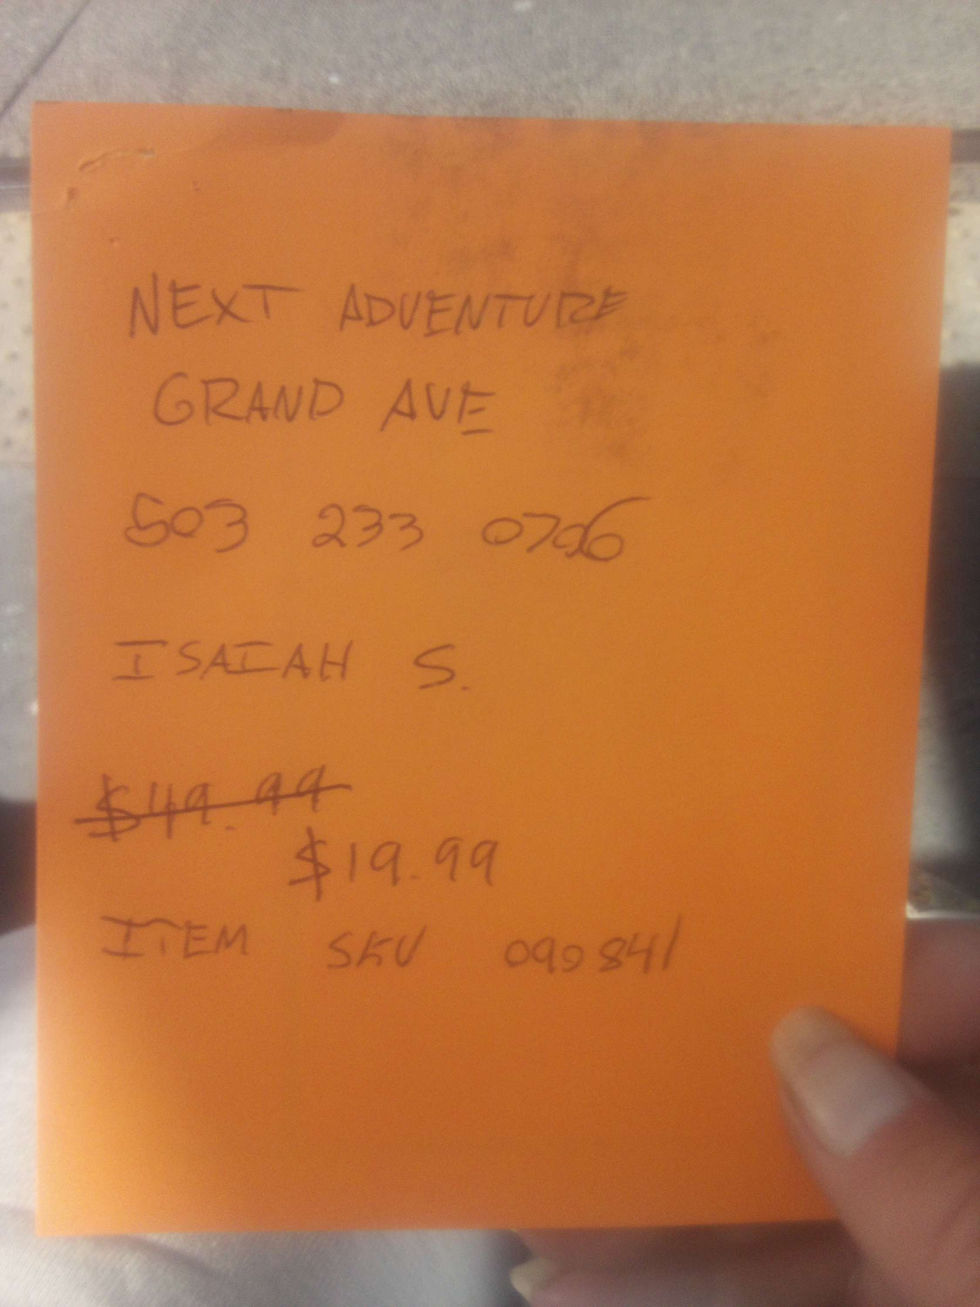 NEXT ADVENTURE
GRAND AVE
503 233 0706
ISAIAH S.
$49.99
$19.99
ITEM SKU 090841